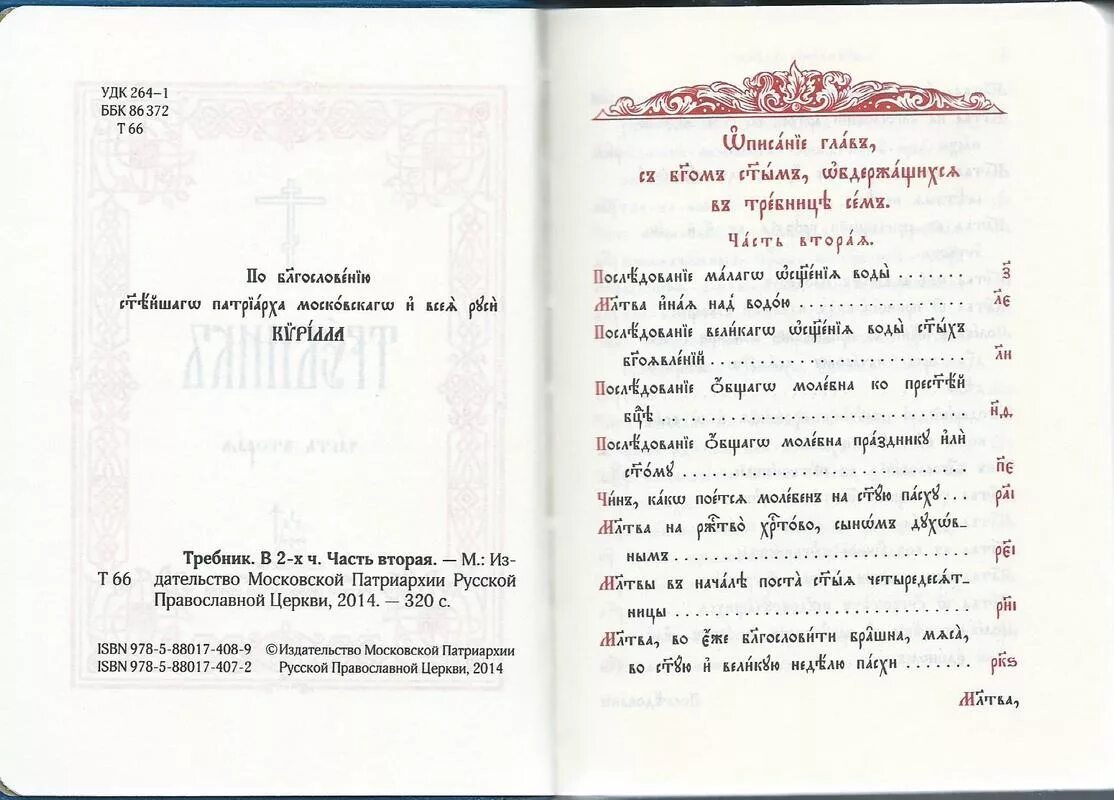 УДК 264–1
ББК 86 372
Т 66
По бл҃гослове́нїю
ст҃ѣ́йшагѡ патрїа́рха моско́вскагѡ и҆ всеѧ̀ рꙋсѝ
КѴРІ́ЛЛА
Требник. В 2-х ч. Часть вторая. — М.: Из-
Т 66 дательство Московской Патриархии Русской
Православной Церкви, 2014. — 320 с.
ISBN 978-5-88017-408-9 ©Издательство Московской Патриархии
ISBN 978-5-88017-407-2 Русской Православной Церкви, 2014
Ѡ҆писа́нїе гла́въ,
съ бг҃омъ ст҃ы́мъ, ѡ҆бдержа́щихсѧ
въ тре́бницѣ се́мъ.
Ча́сть втора́ѧ.
Послѣ́дованїе ма́лагѡ ѡ҆сщ҃е́нїѧ воды̀ ....... з҃
Мл҃тва и҆на́ѧ над̾ водо́ю ................ л҃є
Послѣ́дованїе вели́кагѡ ѡ҆сщ҃е́нїѧ воды̀ ст҃ы́хъ
бг҃оѧвле́нїй ......................... л҃и
Послѣ́дованїе ѻ҆́бщагѡ моле́бна ко прест҃ѣ́й
бц҃ѣ ................................ н҃д
Послѣ́дованїе ѻ҆́бщагѡ моле́бна пра́здникꙋ и҆лѝ
ст҃о́мꙋ ............................. п҃є
Чи́нъ, ка́кѡ пое́тсѧ моле́бенъ на ст҃ꙋ́ю па́схꙋ ... ра҃і
Мл҃тва на ржⷭ҇тво̀ хрⷭ҇то́во, сынѡ́мъ дꙋхѡ́в-
нымъ ................................ рє҃і
Мл҃твы въ нача́лѣ поста̀ ст҃ы́ѧ четыредесѧ́т-
ницы ................................ ри҃і
Мл҃тва, во є҆́же бл҃гослови́ти бра̑шна, мѧса̀,
во ст҃ꙋ́ю и҆ вели́кꙋю недѣ́лю па́схи ....... рк҃ѕ
Мл҃тва,